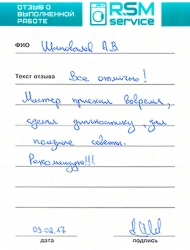 ОТЗЫВ О
ВЫПОЛНЕННОЙ
РАБОТЕ
RSM
service
ФИО Шаповалов А.В.
Текст отзыва Все отлично!
Мастер приехал вовремя,
сделал диагностику, дал
полезные советы.
Рекомендую!!!
09.02.17
дата подпись